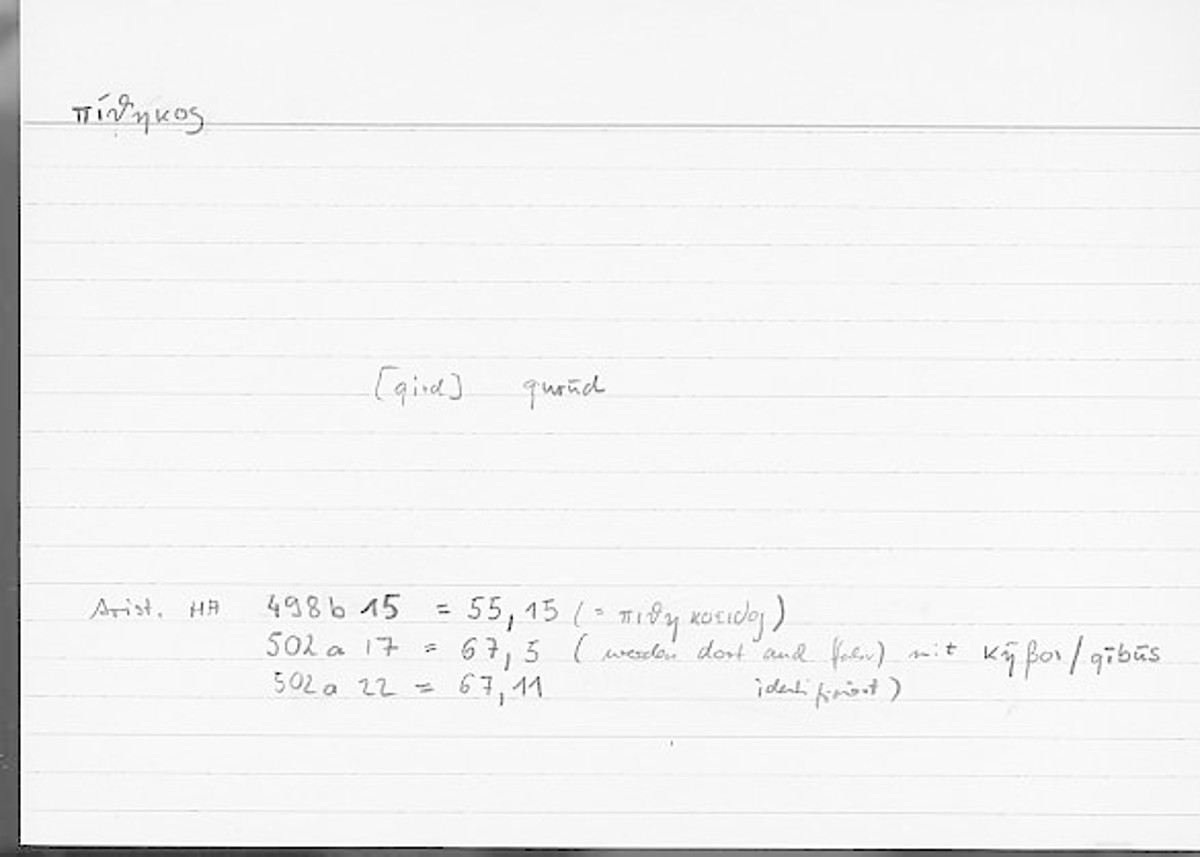 πίθηκος
[qird] qurūd
Arist. HA 498b 15 = 55,15 (= πιθηκοειδης)
502a 17 = 67,5 (werden dort mit κῆβοι/qībūs
502a 22 = 67,11 identifiziert)